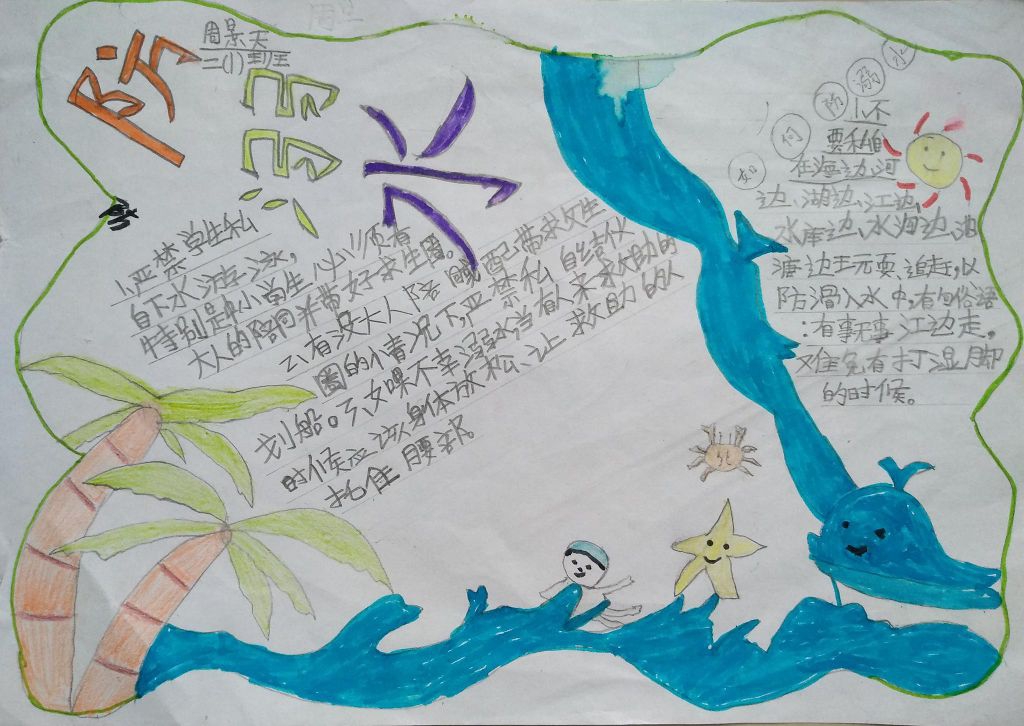 防溺水
周景天
二(1)班
1、严禁学生私
自下水游泳，
特别是中小学生，必须有
大人的陪同并带好求生圈。
2、有没大人陪 配带求救生
圈的小情况下，严禁私自结伙
划船。3、如果不幸溺水当有人来求助的
时候应该身体放松、让救助的人
托住腰部。
如何防溺水
1、不
要私自
在海边、河
边、湖边、江边、
水库边、水沟边、池
渡边玩耍、追赶，以
防滑入水中，有句俗语
：有事无事江边走，
难免有打湿脚
的时候。